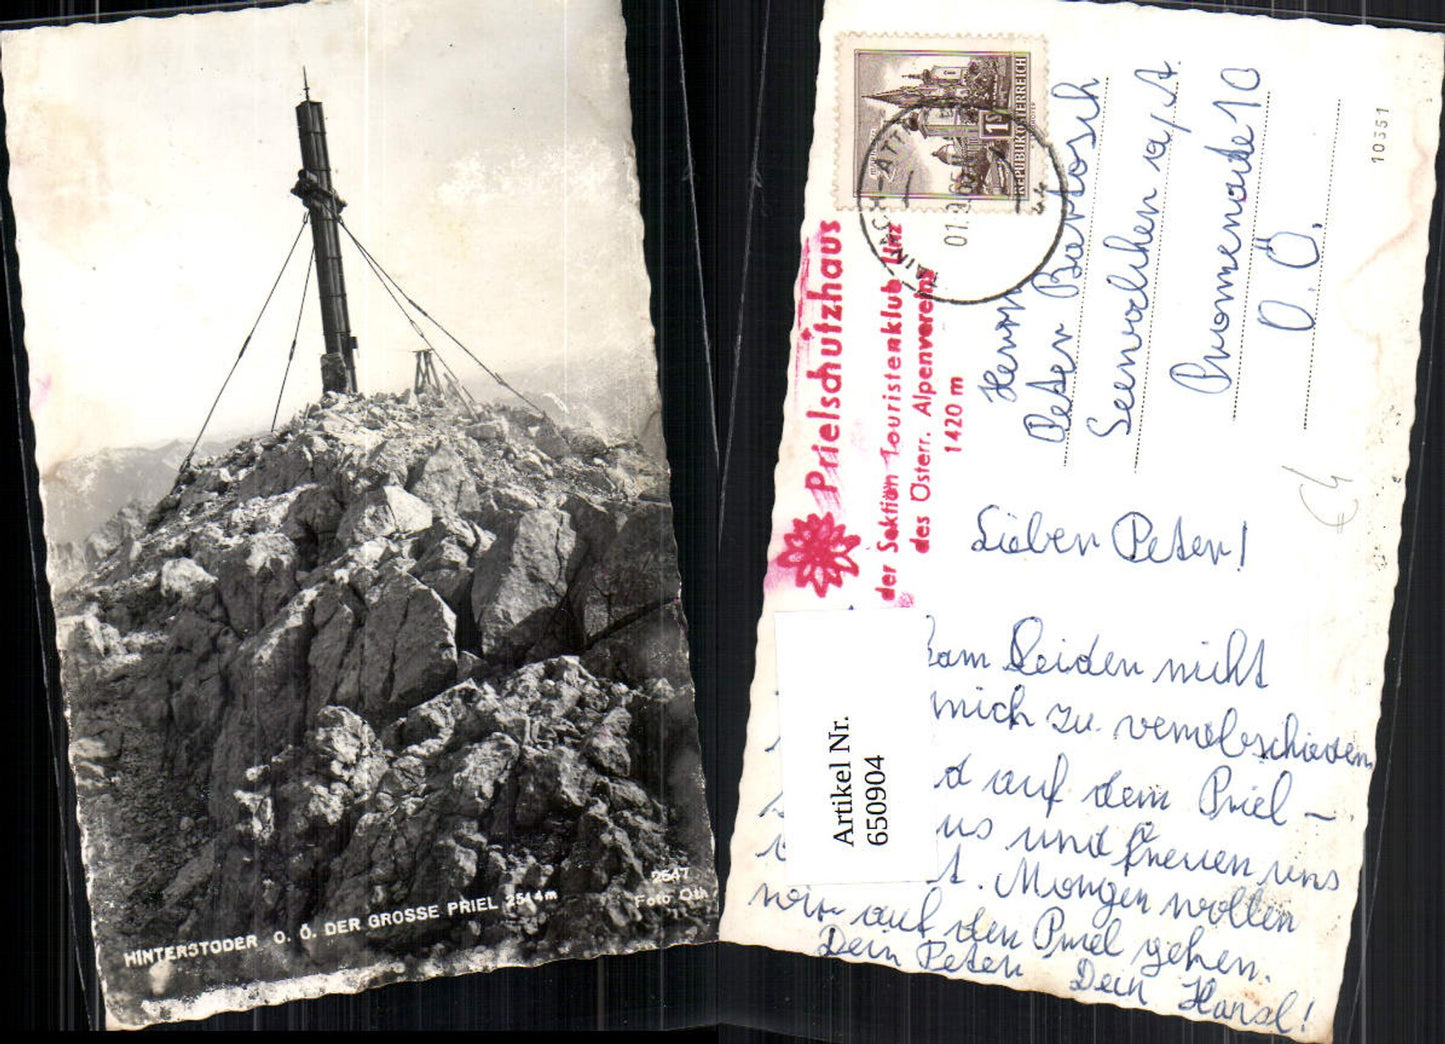 HINTERSTODER O. Ö. DER GROSSE PRIEL 2514m
2547
Foto Oth
REPUBLIK ÖSTERREICH
1
44
Prielschutzhaus
der Sektion Touristenklub Linz
des Österr. Alpenvereins
1420 m
Herrn
Peter Bartosch
Seewalchen a/A.
Promenade 10
O.Ö.
10351
€4
Lieber Peter!
Leiden nicht
mich zu verabschieden
auf dem Priel-
und freuen uns
Morgen wollen
wir auf den Priel gehen.
Dein Peter Dein Hansl!
Artikel Nr.
650904